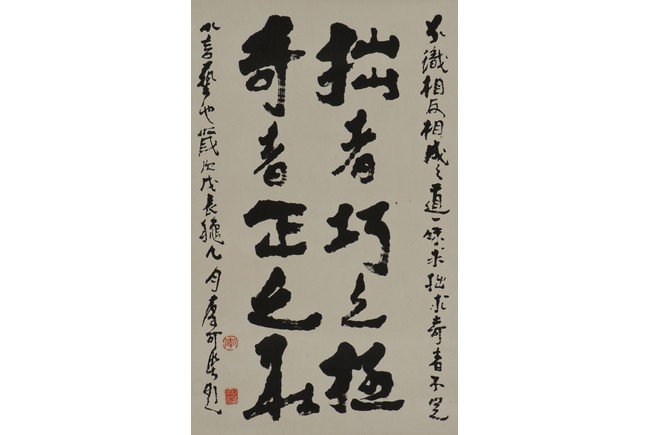 不識相反相成之道一味求拙求奇者不足
拙者巧之極
奇者正之
以言藝也歲次戊辰九月李可染題